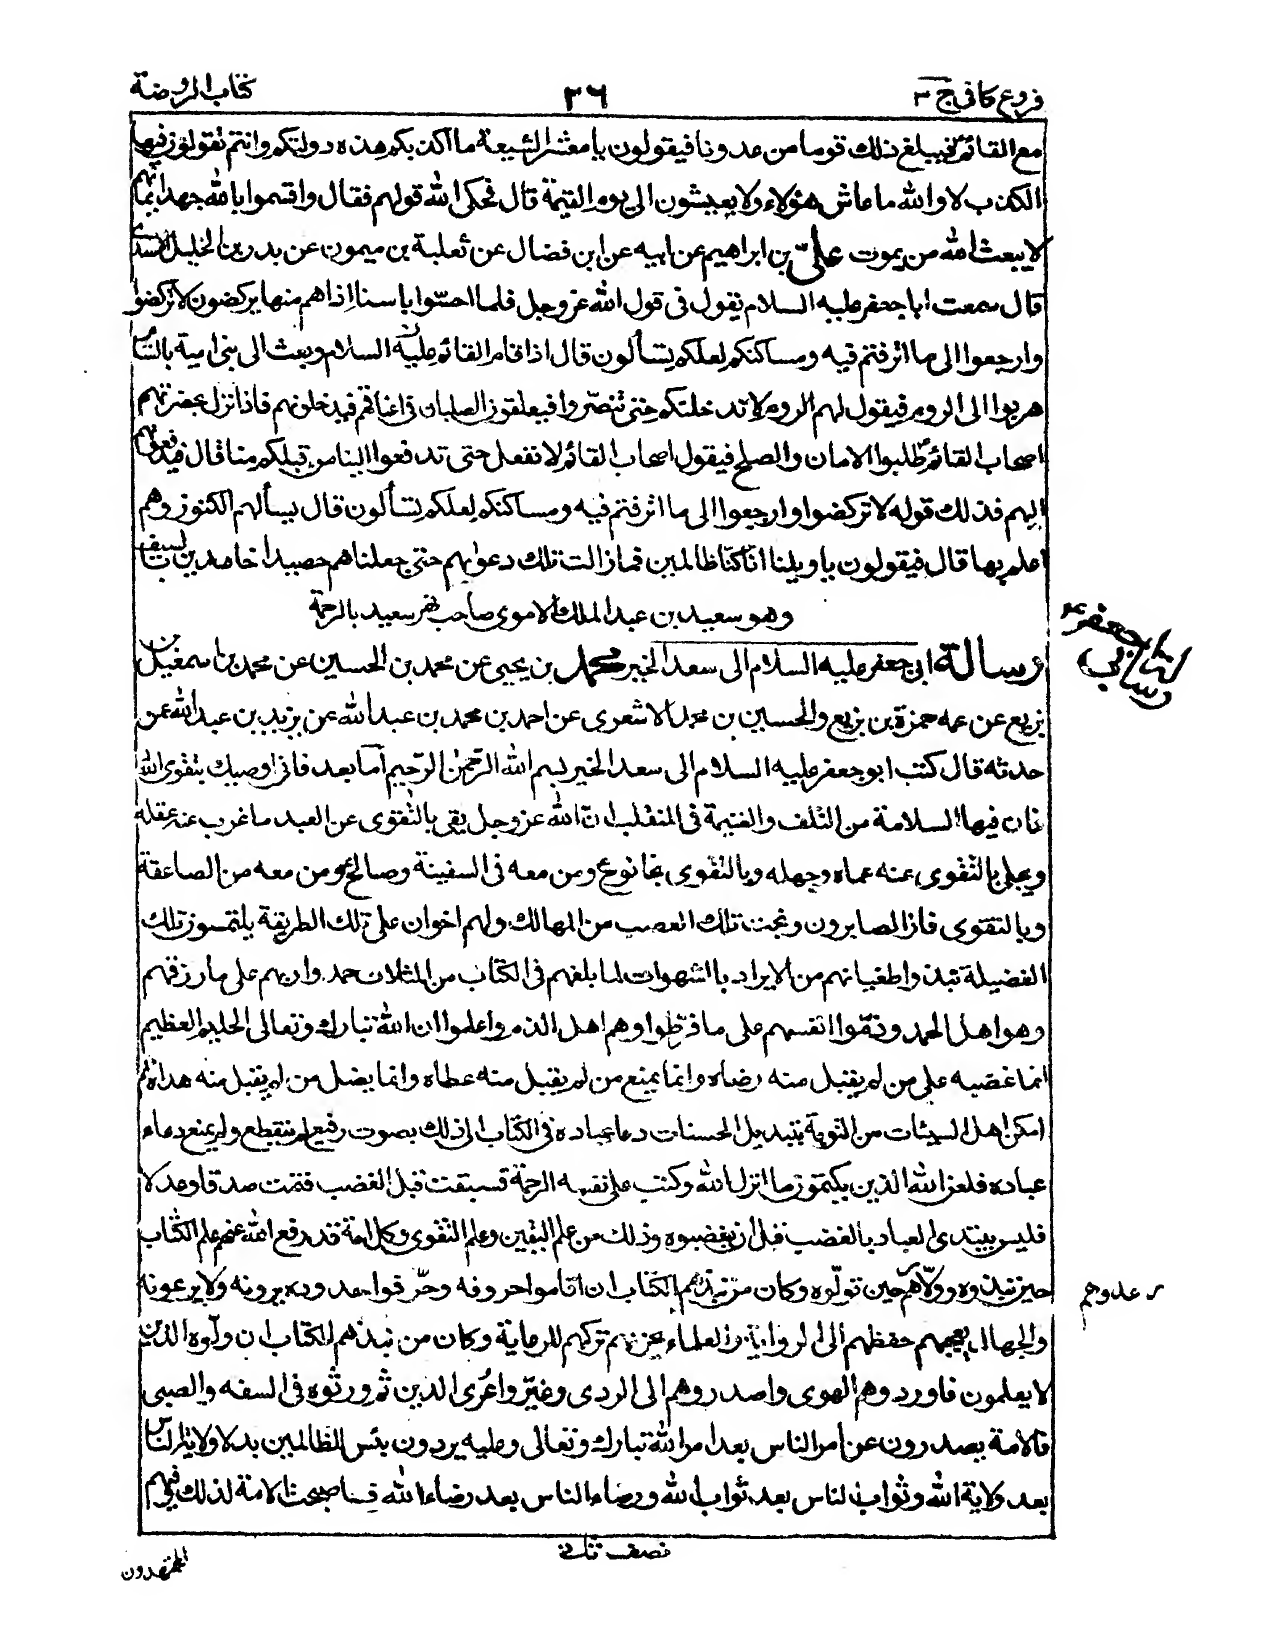 فروع كافى ج ٣
٣٦
كتاب الروضة
مع القائم فيبلغ ذلك قوما من عدونا فيقولون يا معشر الشيعة ما اكذبكم هذه دولتكم وانتم تقولون فيها
الكذب لا والله ما عاش هؤلاء ولا يعيشون الى يوم القيمة قال فحكى الله قولهم فقال واقسموا بالله جهد ايمانهم
لا يبعث الله من يموت علىّ بن ابراهيم عن ابيه عن ابن فضال عن ثعلبة بن ميمون عن بدر بن الخليل الاسدى
قال سمعت ابا جعفر عليه السلام يقول فى قول الله عز وجل فلما احسّوا باسنا اذا هم منها يركضون لا تركضوا
وارجعوا الى ما اترفتم فيه ومساكنكم لعلكم تسألون قال اذا قام القائم عليه السلام وبعث الى بنى امية بالشام
هربوا الى الروم فيقول لهم الروم لا ندخلنكم حتى تنصّروا فيعلقون فى اعناقهم الصلبان فيدخلونهم فاذا نزل بحضرتهم
اصحاب القائم طلبوا الامان والصلح فيقول اصحاب القائم لا نفعل حتى تدفعوا الينا من قبلكم منا قال فيدفعونهم
اليهم فذلك قوله لا تركضوا وارجعوا الى ما اترفتم فيه ومساكنكم لعلكم تسألون قال يسألهم الكنوز وهم
اعلم بها قال فيقولون يا ويلنا انا كنّا ظالمين فما زالت تلك دعواهم حتى جعلناهم حصيدا خامدين بالسيف
وهو سعيد بن عبد الملك الاموى صاحب نهر سعيد بالرحمة
رسالة ابى جعفر عليه السلام الى سعد الخير محمد بن يحيى عن محمد بن الحسين عن محمد بن اسمعيل بن
بزيع عن عمه حمزة بن بزيع والحسين بن محمد الاشعرى عن احمد بن محمد بن عبد الله عن يزيد بن عبد الله عمن
حدثه قال كتب ابو جعفر عليه السلام الى سعد الخير بسم الله الرحمن الرحيم اما بعد فانى اوصيك بتقوى الله
فان فيها السلامة من التلف والغنيمة فى المنقلب ان الله عز وجل يقى بالتقوى عن العبد ما عزب عنه عقله
ويجلى بالتقوى عنه عماه وجهله وبالتقوى نجا نوح ومن معه فى السفينة وصالح ومن معه من الصاعقة
وبالتقوى فاز الصابرون ونجت تلك العصب من المهالك ولهم اخوان على تلك الطريقة يلتمسون تلك
الفضيلة نبذوا طغيانهم من الايراد بالشهوات لما بلغهم فى الكتاب من المثلات حمدوا ربهم على ما رزقهم
وهو اهل الحمد وذمّوا انفسهم على ما فرّطوا وهم اهل الذم واعلموا ان الله تبارك وتعالى الحليم العظيم
انما غضبه على من لم يقبل منه رضاه وانما يمنع من لم يقبل منه عطاه وانما يضل من لم يقبل منه هداه ثم
امكن اهل السيئات من التوبة بتبديل الحسنات دعا عباده فى الكتاب الى ذلك بصوت رفيع لم ينقطع ولم يمنع دعاء
عباده فلعن الله الذين يكتمون ما انزل الله وكتب على نفسه الرحمة فسبقت قبل الغضب فتمت صدقا وعدلا
فليس يبتدى العباد بالغضب قبل ان يغضبوه وذلك من علم اليقين وعلم التقوى وكل امة قد رفع الله عنهم علم الكتاب
حين نبذوه وولّاهم حين تولّوه وكان من نبذهم الكتاب ان اقاموا حروفه وحرّفوا حدوده يروونه ولا يرعونه
عدوهم
والجهال يعجبهم حفظهم للرواية والعلماء يحزنهم تركهم للرعاية وكان من نبذهم الكتاب ان ولّوه الذين
لا يعلمون فاوردوهم الهوى واصدروهم الى الردى وغيّروا عُرى الدين ثم ورثوه فى السفه والصبى
فالامة يصدرون عن امر الناس بعد امر الله تبارك وتعالى وعليه يردون بئس للظالمين بدلا ولاية الناس
بعد ولاية الله وثواب الناس بعد ثواب الله ورضاء الناس بعد رضاء الله فاصبحت الامة لذلك فيهم
نصف ثانى
المجتهدون